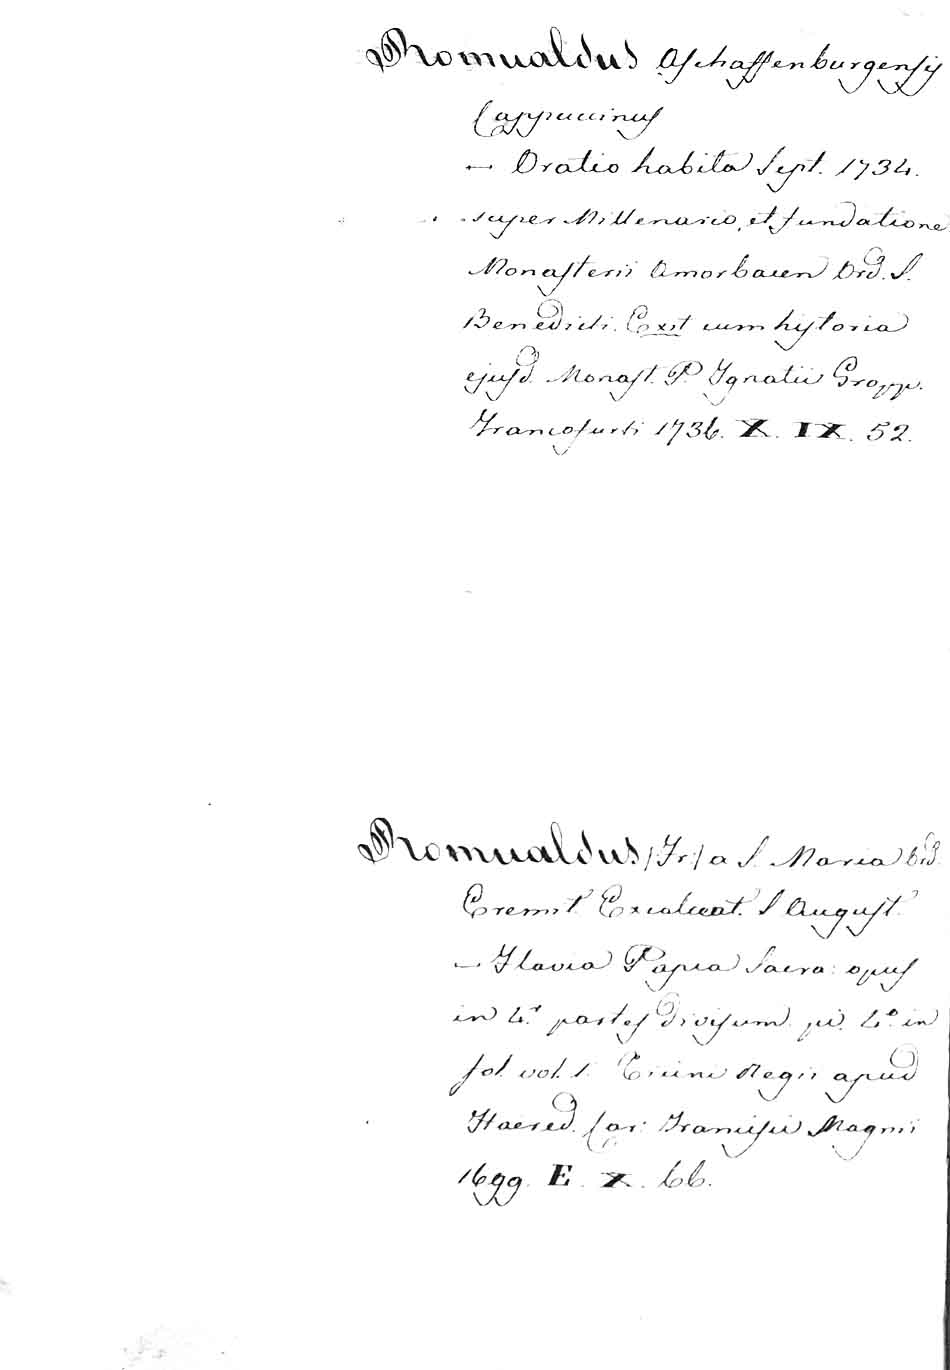 Romualdus Aschaffenburgensis
Cappucinus
— Oratio habita Sept. 1734.
super Millenario, et fundatione
Monasterii Amorbacen Ord. S.
Benedicti. Exit cum historia
ejusd. Monast. P. Ignatii Gropp.
Francofurti 1736. X. IX. 52.
Romualdus /Fr:/ a S. Maria Ord.
Eremit. Excalceat. S August.
— Flavia Papia Sacra: opus
in 4.r partes divisum. pi. 4.o in
fol. vol. 1. Ticini Regii apud
Haered. Car: Francisci Magrii
1699. E. X. 66.